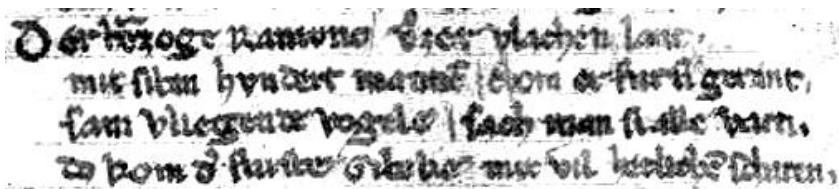 Der herzoge Ramunc vzer vlachen lant.
mit siben hvndert mannē | chom er fur si gerant.
sam vliegende vogele | sach man si alle varn.
do kom d' furste Gibeke mit vil herlichē scharen.